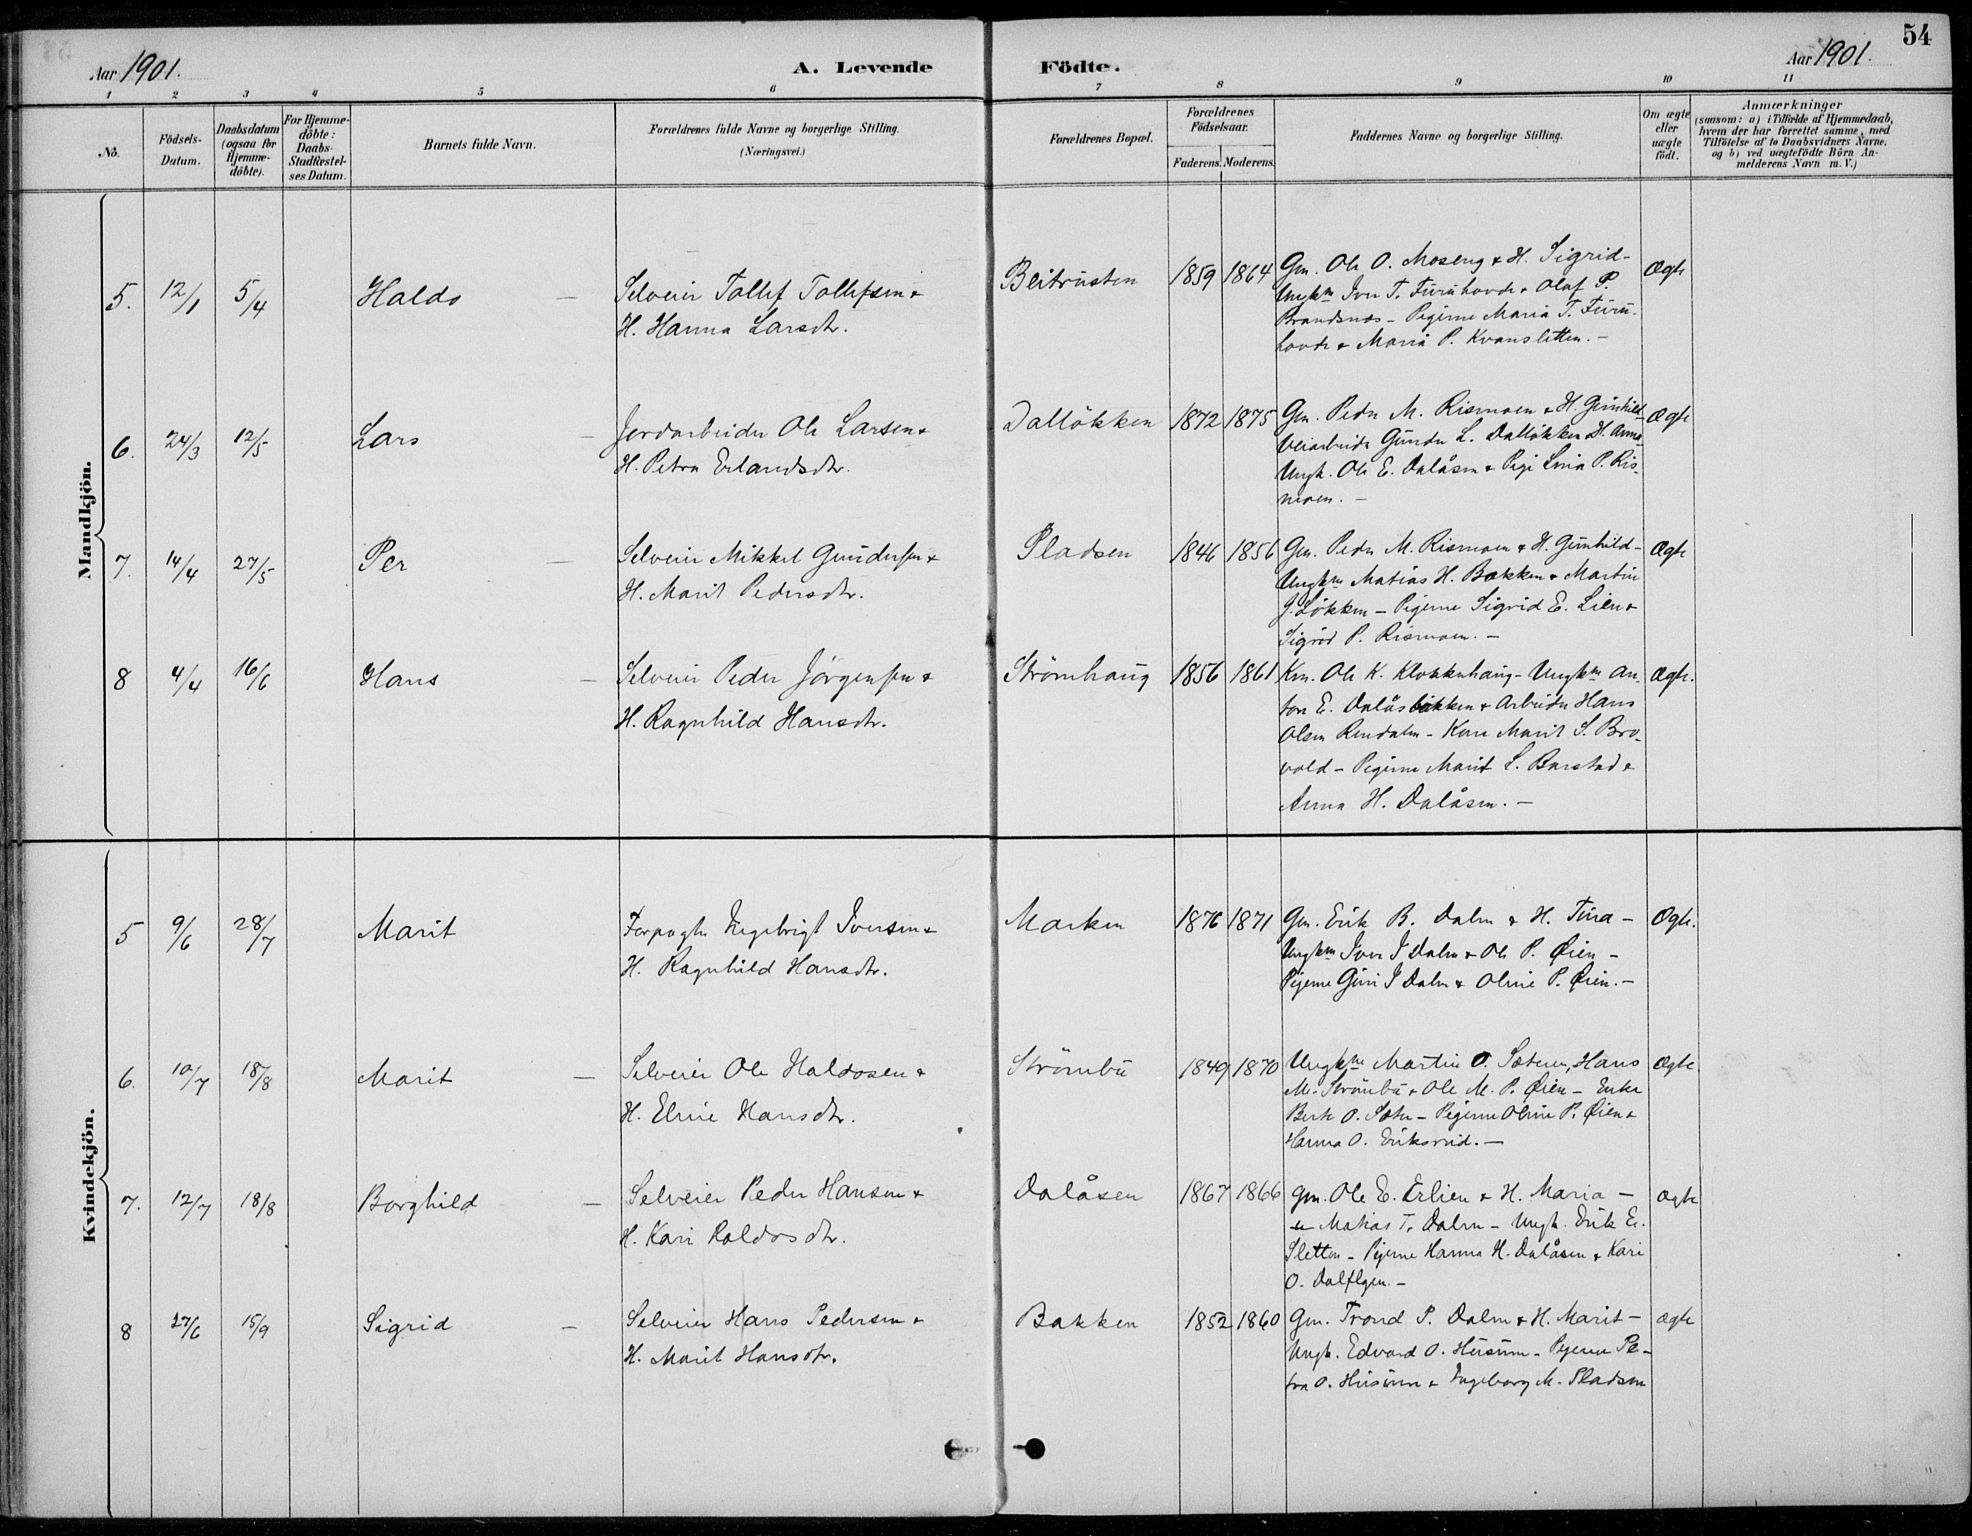 54
Aar 1901.
A. Levende Födte.
Aar 1901.
1 2 3 4 5 6 7 8 9 10 11
No.
Födsels-
Datum.
Daabsdatum
(ogsaa for
Hjemme-
döbte).
For Hjemme-
döbte:
Daabs-
Stadfæstel-
ses Datum.
Barnets fulde Navn.
Forældrenes fulde Navne og borgerlige Stilling.
(Næringsvei.)
Forældrenes Bopæl.
Forældrenes
Födselsaar.
Faderens. Moderens.
Faddernes Navne og borgerlige Stilling.
Om ægte
eller
uægte
födt.
Anmærkninger
(saasom: a) i Tilfælde af Hjemmedaab,
hvem der har forrettet samme, med
Tilföielse af to Daabsvidners Navne,
og b) ved uægtefödte Börn An-
melderens Navn m. V.)
Mandkjön.
5. 12/1 5/4 Haldo — Selveier Tollef Tollefsen &
H. Hanna Larsdtr.
Beitrusten 1859 1864
Gm. Ole O. Moseng & H. Sigrid –
Ungkm Iver T. Furuhovde & Olaf P.
Brandsnes – Pigerne Maria T. Furu-
hovde & Maria P. Kvansletten. –
Ægte
6. 24/3 12/5 Lars — Jordarbeider Ole Larsen &
H. Petra Erlandsdtr.
Dalløkken 1872 1875
Gm. Peder M. Rismoen & H. Gunhild–
Veiarbeider Gunder L. Dalløkken & H. Anna–
Ungk. Ole E. Dalåsen & Pige Lina P. Ris-
moen. –
Ægte
7. 14/4 27/5 Per — Selveier Mikkel Gundersen &
H. Marit Pedersdtr.
Pladsen 1846 1856
Gm. Peder M. Rismoen & H. Gunhild –
Ungkm Matias H. Bakken & Martin
J. Løkken – Pigerne Sigrid E. Lien &
Sigrid P. Rismoen. –
Ægte
8 4/4 16/6 Hans — Selveier Peder Jörgensen &
H. Ragnhild Hansdtr.
Strömhaug 1856 1861
Km. Ole K. Klokkerhaug – Ungkm An-
ton E. Dalåsbakken & Arbeider Hans
Olsen Rendalen – Kone Marit S. Bro-
vold – Pigerne Marit L. Barstad &
Anna H. Dalåsen. –
Ægte.
Kvindekjön.
5 9/6 28/7 Marit
Forpagter Ingebrigt Iversen &
H. Ragnhild Hansdtr.
Marken 1876 1871
Gm. Erik B. Dalen & H. Tina –
Ungkm Iver I Dalen & Ole P. Øien –
Pigerne Guri I Dalen & Oline P. Øien. –
Ægte.
6. 10/7 18/8 Marit — Selveier Ole Haldosen &
H. Eline Hansdtr.
Strömbu 1849 1870
Ungkm Martin O. Sæteren, Hans
M. Strömbu & Ole M. P. Øien – Enke
Berte O. Sæter – Pigerne Oline P. Øien &
Hanna O. Eriksrud. –
Ægte
7. 12/7 18/8 Borghild — Selveier Peder Hansen &
H. Kari Haldosdtr.
Dalåsen 1867 1866
Gm. Ole E. Erlien & H. Maria –
Matias T. Dalen – Ungk. Erik E.
Sletten – Pigerne Hanna H. Dalåsen & Kari
O. –
ægte
8 27/6 15/9 Sigrid — Selveier Hans Pedersen &
H. Marit Hansdtr.
Bakken 1852 1860
Gm. Trond P. Dalen & H. Marit –
Ungk. Edvard O. Husum – Pigerne Pe-
tra O. Husum & Ingeborg M. Pladsen
ægte